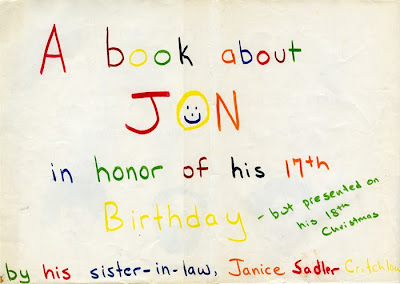 A book about
JON
in honor of his 17th
Birthday - but presented on
his 18th
Christmas
by his sister-in-law, Janice Sadler Critchlow